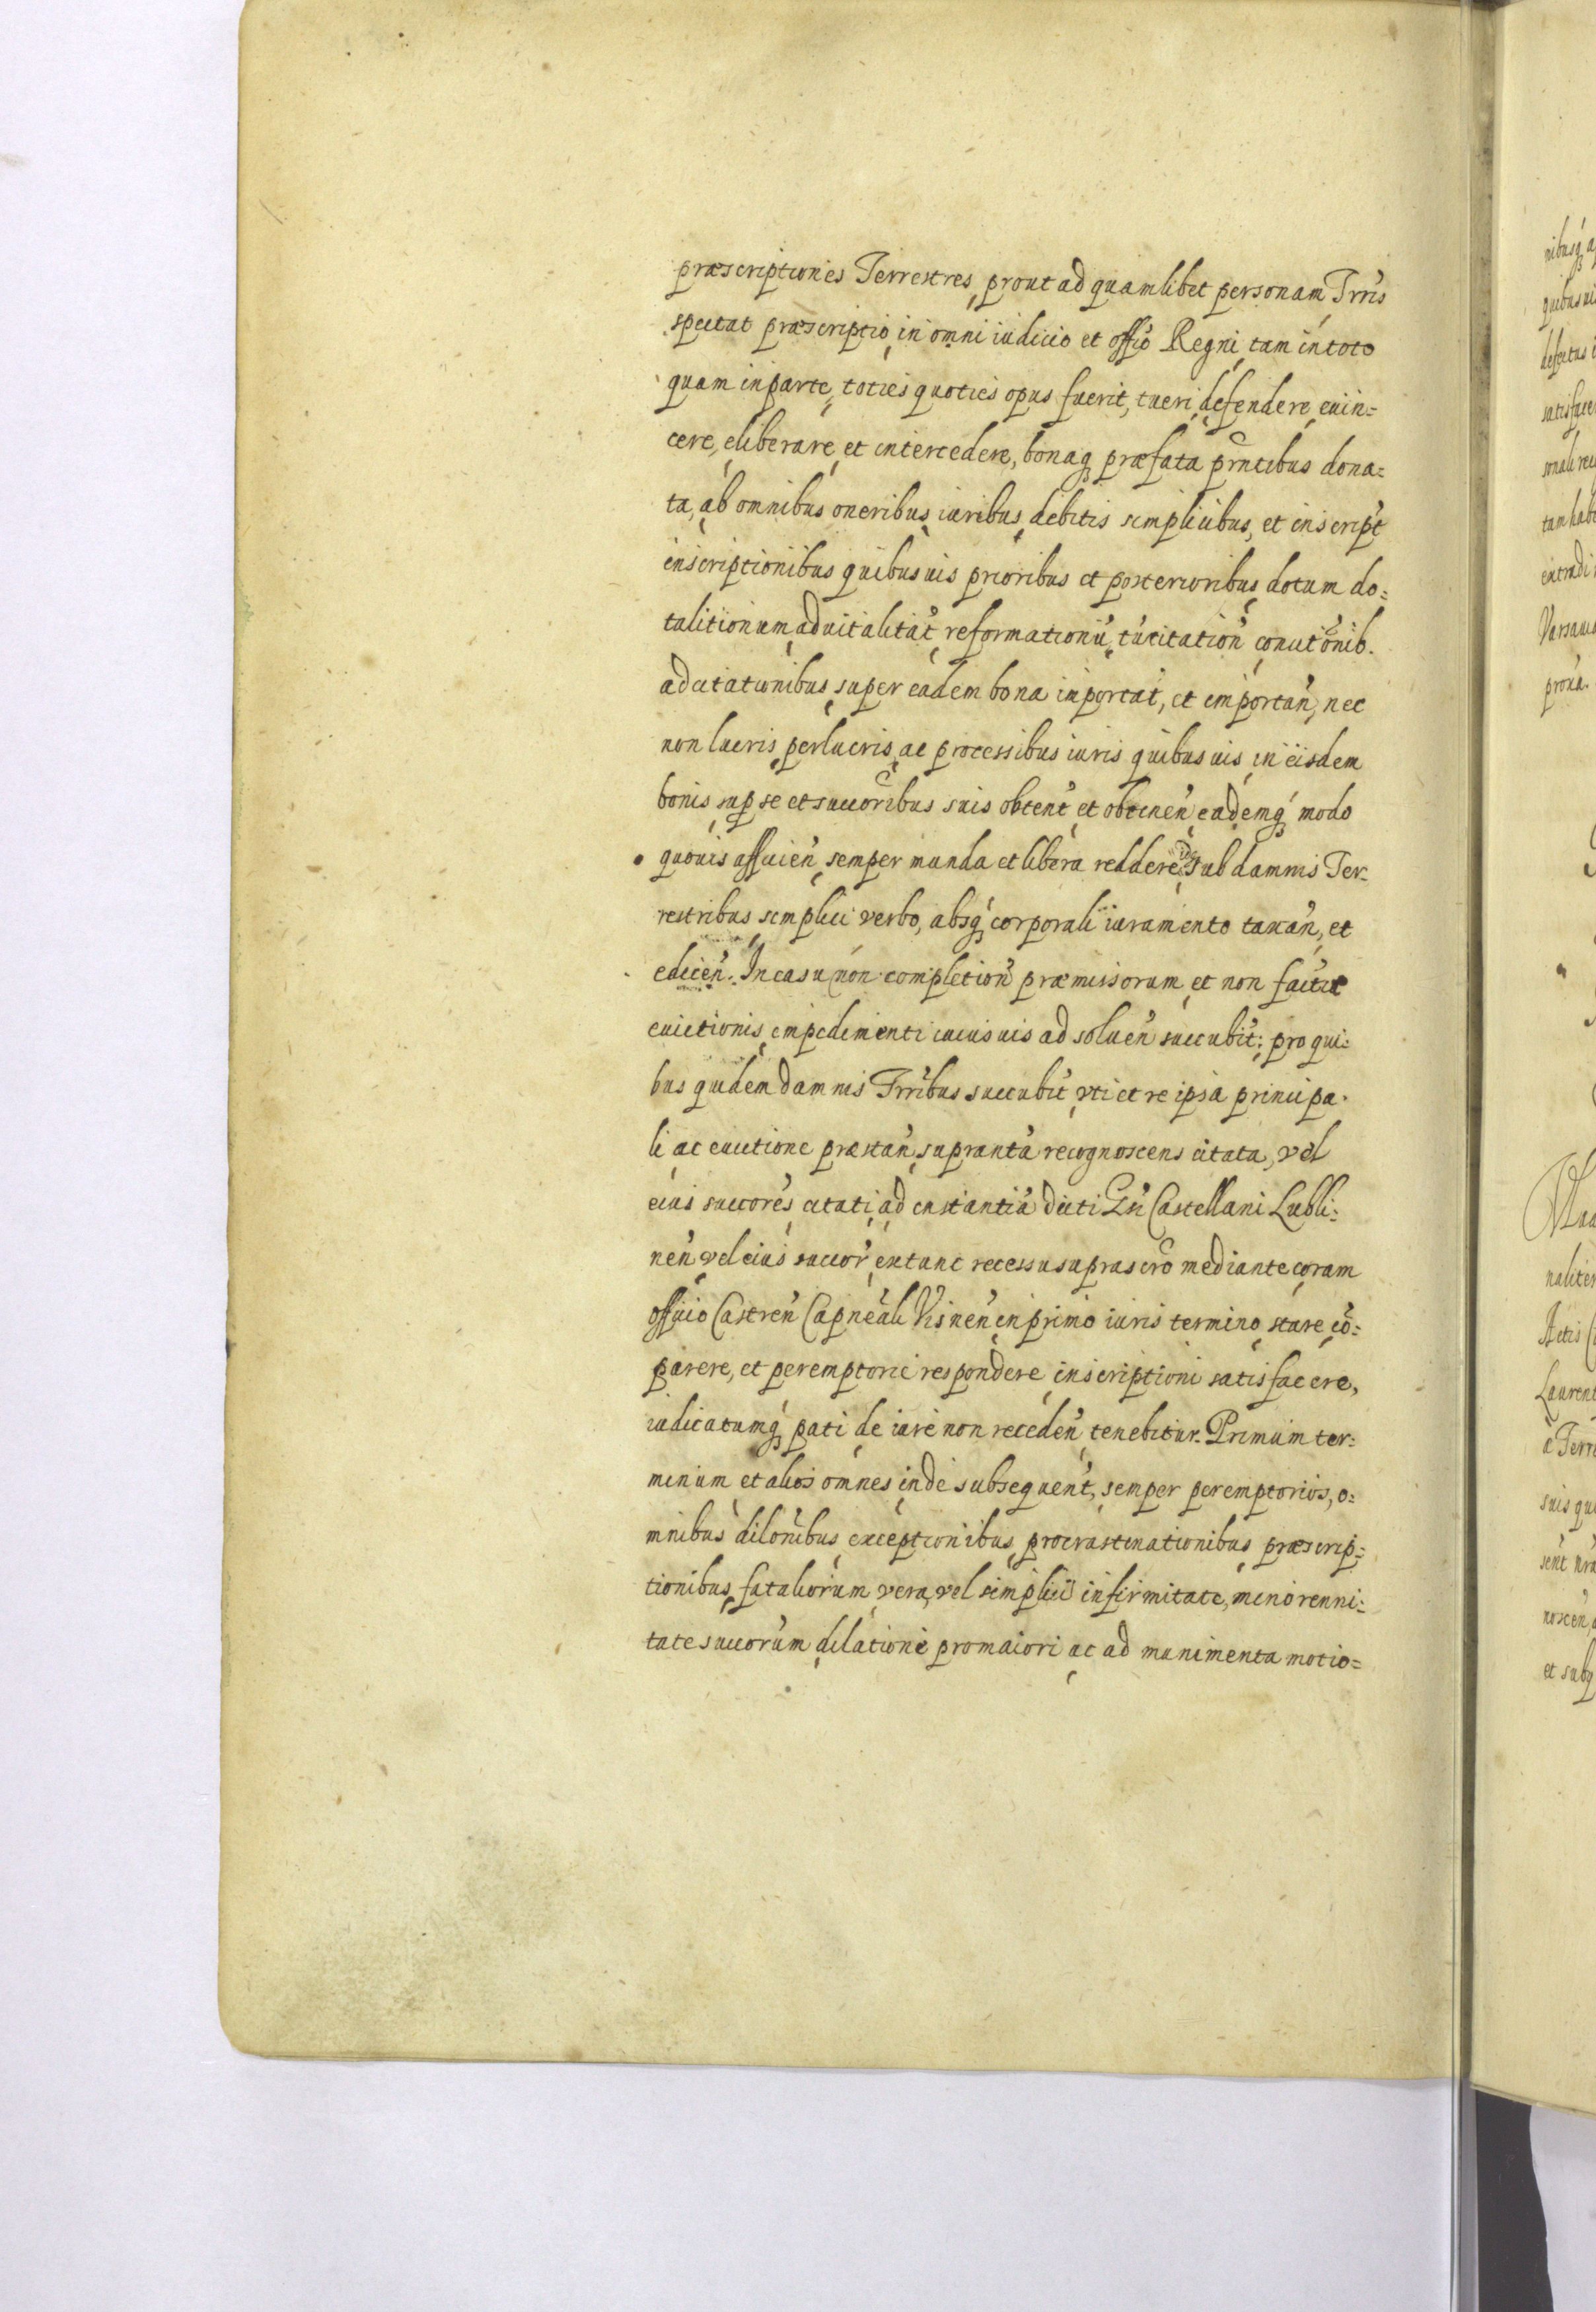 præscriptiones Terrestres, prout ad quamlibet personam Trris
spectat præscriptio, in omni iudicio et offio Regni, tam in toto
quam in parte, toties quoties opus fuerit, tueri, defendere, euin=
cere, eliberare, et intercedere, bonaq præfata prntibus dona=
ta, ab omnibus oneribus, iuribus, debitis simplicibus, et inscript
inscriptionibus quibusuis prioribus et posterioribus, dotum do=
talitionum, aduitalitat, reformationu, tutition, conuetionib.
adcitationibus, super eadem bona inportat, et importan, nec
non lucris, perlucris, ac processibus iuris quibusuis, in eisdem
bonis, sup se et succoribus suis obtent, et obtinen, eademq modo
quouis afficien, semper munda et libera reddere, Sub damnis Ter-
restribus, simplici verbo, absq corporali iuramento taxan, et
edicen. In casu non completion præmissorum, et non factæ
euictionis, impedimenti cuiusuis ad soluen succubit: pro qui=
bus quidem damnis Trribus succubit, vti et re ipsa principa-
li ac euictione præstan, supranta recognoscens citata, vel
eius succores, citati, ad instantia dicti Gsi Castellani Lubli=
nen, vel eius succor, extunc recessu suprascro mediante, coram
officio Castren Capneali Visnen, in primo iuris termino, stare, co=
parere, et peremptorie respondere, inscriptioni satisfacere,
iudicatumq pati, de iure non receden, tenebitur. Primum ter=
minum et alios omnes, inde subsequent, semper peremptorios, o=
mnibus dilonibus, exceptionibus, procrastinationibus, præscrip=
tionibus, fataliorum, vera, vel simplici infirmitate, minorenni=
tate succorum, dilatione pro maiori, ac ad munimenta motio=